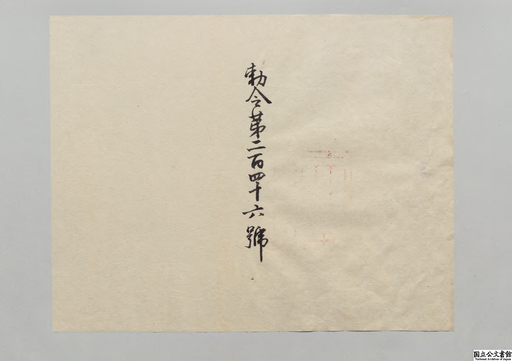 勅令第二百四十六號
国立公文書館
National Archives of Japan